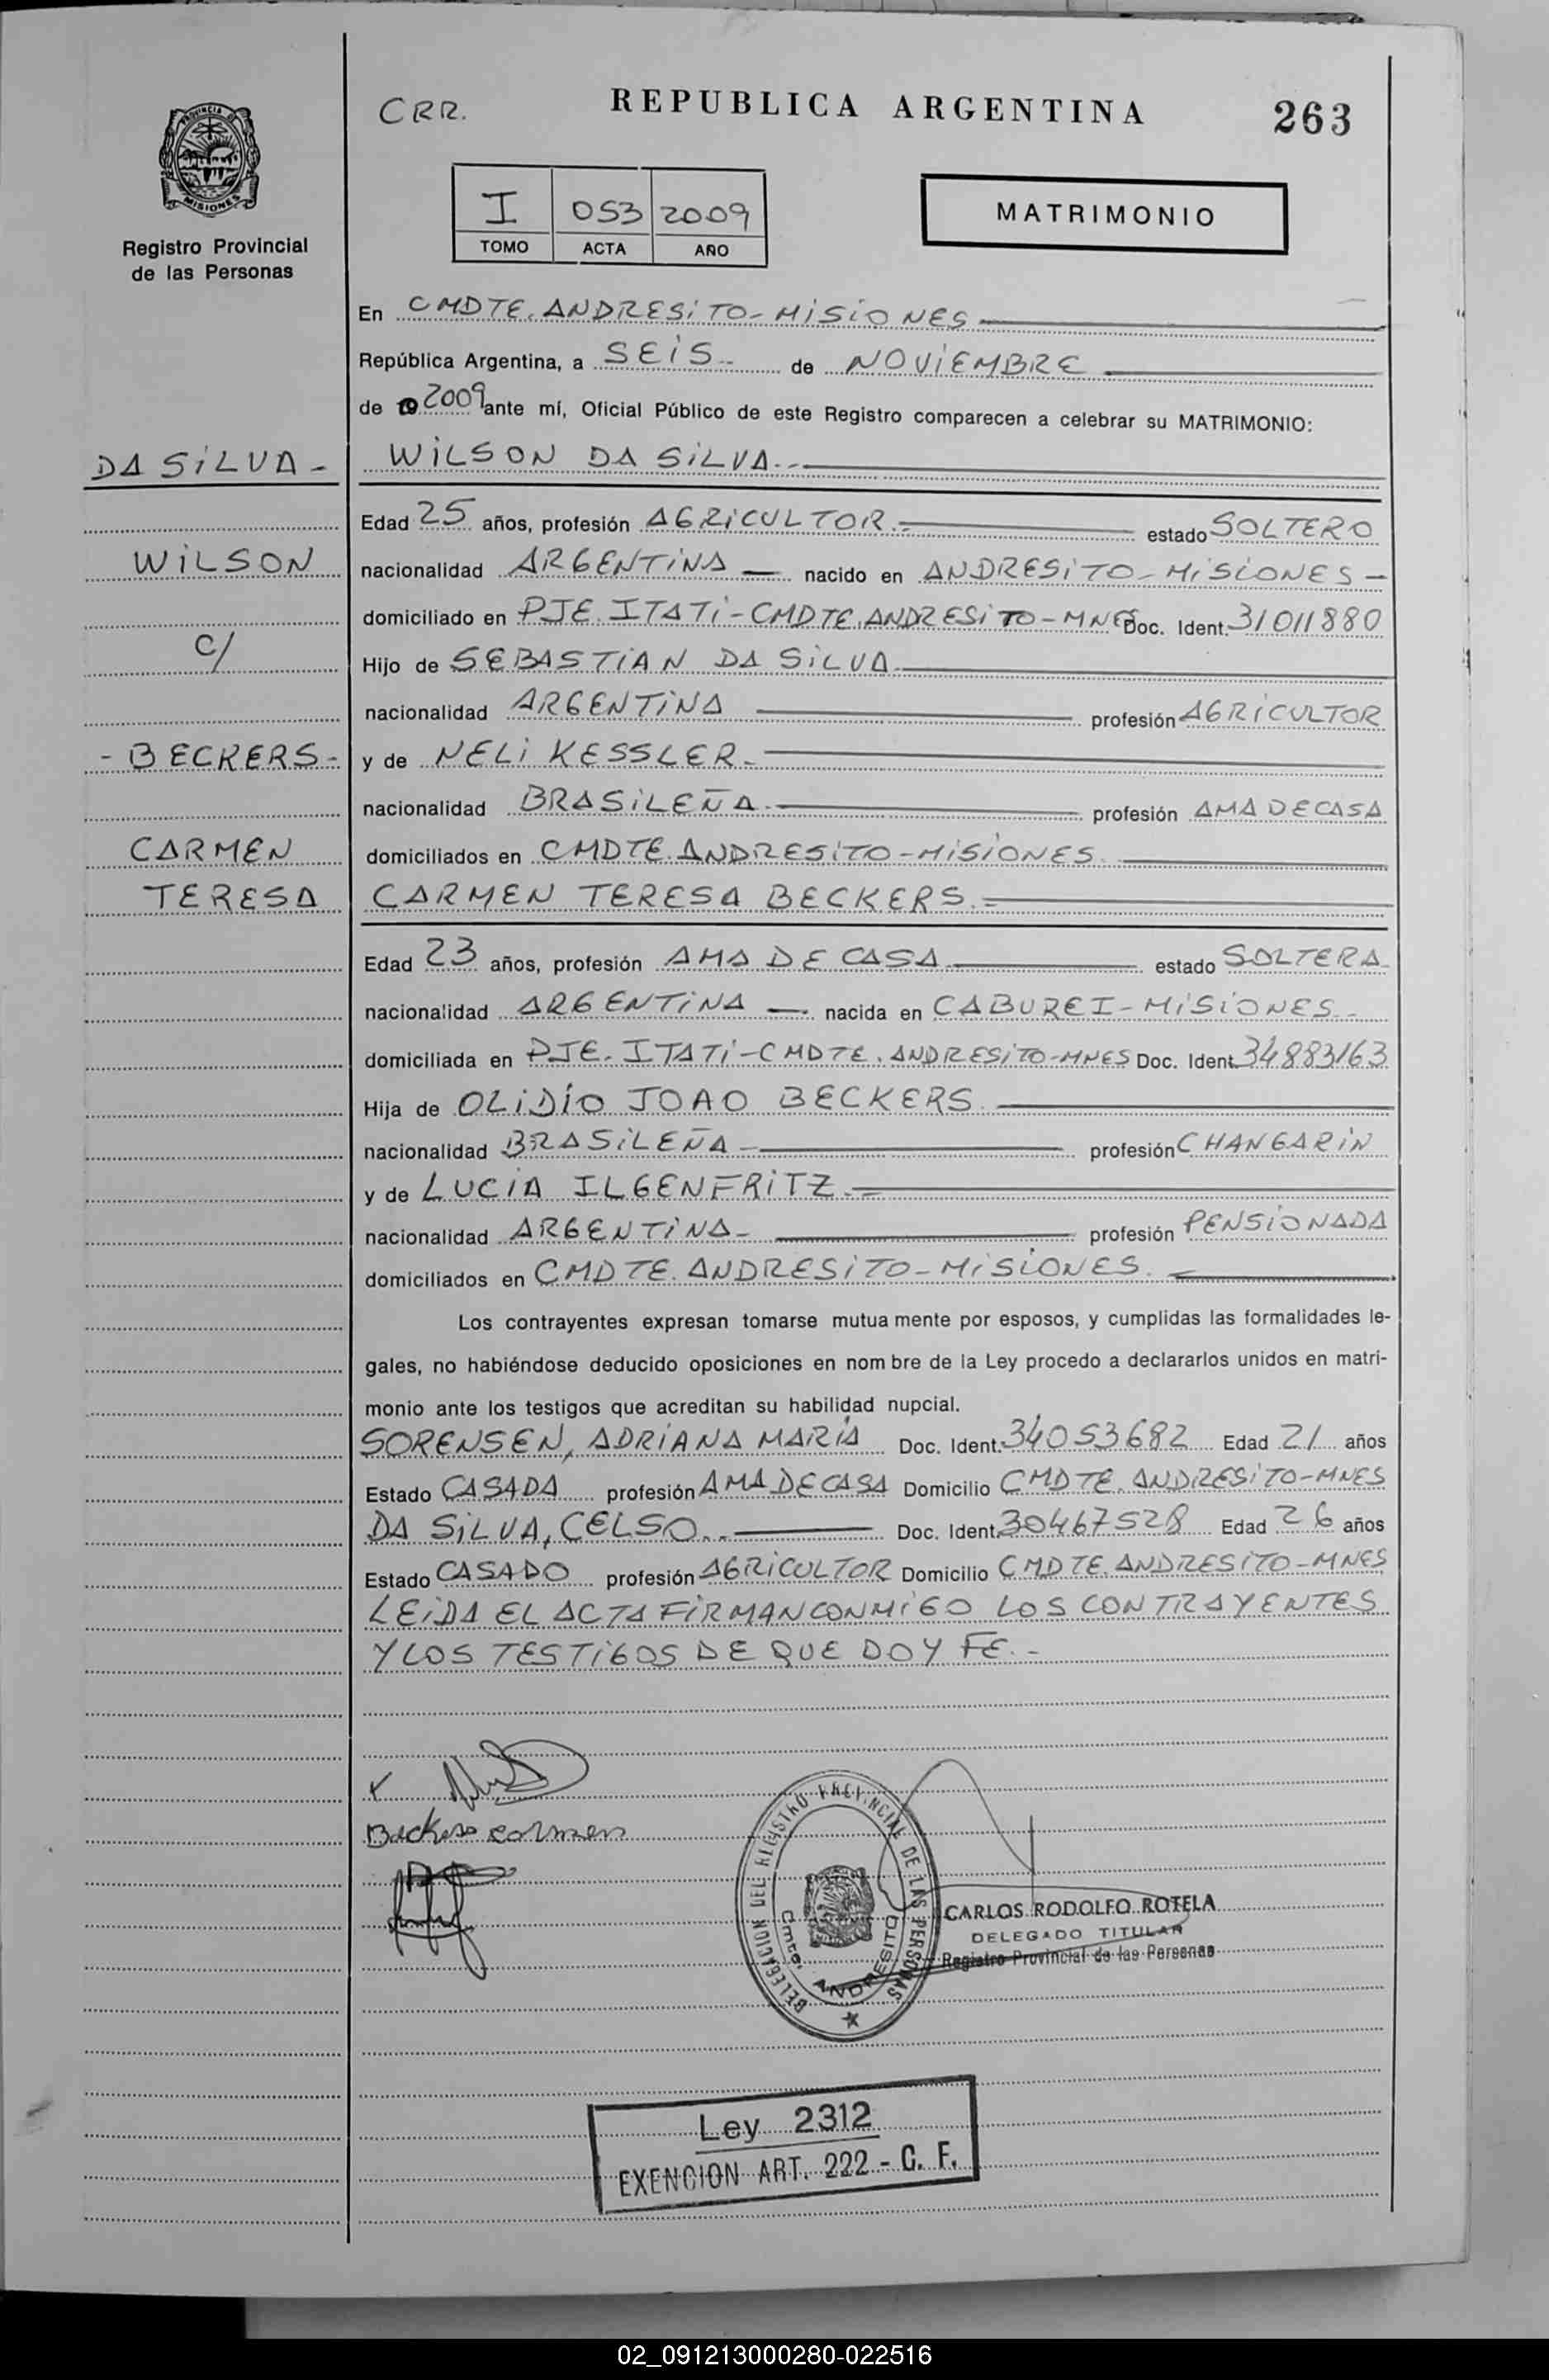 CRR.
REPUBLICA ARGENTINA
263
PROVINCIA DE
MISIONES
Registro Provincial
de las Personas
I 053 2009
TOMO ACTA AÑO
MATRIMONIO
En CMDTE. ANDRESITO - MISIONES
República Argentina, a SEIS de NOVIEMBRE
de 19 2009 ante mí, Oficial Público de este Registro comparecen a celebrar su MATRIMONIO:
DA SILVA - WILSON DA SILVA.-
Edad 25 años, profesión AGRICULTOR.- estado SOLTERO
WILSON nacionalidad ARGENTINA — nacido en ANDRESITO - MISIONES -
domiciliado en PJE. ITATI - CMDTE. ANDRESITO - MNES Doc. Ident. 31011880
C/ Hijo de SEBASTIAN DA SILVA
nacionalidad ARGENTINA profesión AGRICULTOR
- BECKERS - y de NELI KESSLER.
nacionalidad BRASILEÑA. profesión AMA DE CASA
CARMEN domiciliados en CMDTE. ANDRESITO - MISIONES.
TERESA CARMEN TERESA BECKERS.-
Edad 23 años, profesión AMA DE CASA estado SOLTERA
nacionalidad ARGENTINA — nacida en CABUREI - MISIONES.
domiciliada en PJE. ITATI - CMDTE. ANDRESITO - MNES Doc. Ident. 34883163
Hija de OLIDIO JOAO BECKERS.
nacionalidad BRASILEÑA - profesión CHANGARIN
y de LUCIA ILGENFRITZ.-
nacionalidad ARGENTINA - profesión PENSIONADA
domiciliados en CMDTE. ANDRESITO - MISIONES.
Los contrayentes expresan tomarse mutua mente por esposos, y cumplidas las formalidades le-
gales, no habiéndose deducido oposiciones en nom bre de la Ley procedo a declararlos unidos en matri-
monio ante los testigos que acreditan su habilidad nupcial.
SORENSEN, ADRIANA MARIA Doc. Ident. 34053682 Edad 21 años
Estado CASADA profesión AMA DE CASA Domicilio CMDTE. ANDRESITO - MNES
DA SILVA, CELSO.- Doc. Ident. 30467528 Edad 26 años
Estado CASADO profesión AGRICULTOR Domicilio CMDTE. ANDRESITO - MNES
LEIDA EL ACTA FIRMAN CONMIGO LOS CONTRAYENTES
Y LOS TESTIGOS DE QUE DOY FE.-
Beckers carmen
DELEGACION DEL REGISTRO PROVINCIAL DE LAS PERSONAS
Cmte. ANDRESITO
CARLOS RODOLFO ROTELA
DELEGADO TITULAR
Registro Provincial de las Personas
Ley 2312
EXENCION ART. 222 - C. F.
02_091213000280-022516